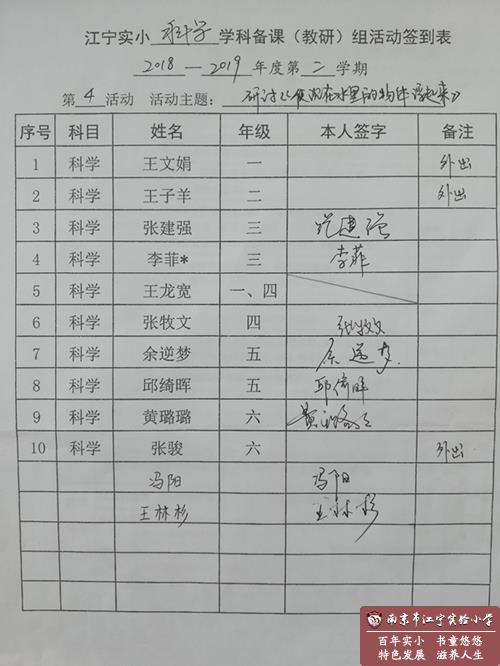 江宁实小 科学 学科备课（教研）组活动签到表
2018—2019年度第二学期
第4活动 活动主题：研讨《使沉在水里的物体浮起来》
序号 科目 姓名 年级 本人签字 备注
1 科学 王文娟 一 外出
2 科学 王子羊 二 外出
3 科学 张建强 三 张建强
4 科学 李菲* 三 李菲
5 科学 王龙宽 一、四
6 科学 张牧文 四 张牧文
7 科学 余逆梦 五 余逆梦
8 科学 邱绮晖 五 邱绮晖
9 科学 黄璐璐 六 黄璐璐
10 科学 张骏 六 外出
冯阳 冯阳
王林杉 王林杉
南京市江宁实验小学
百年实小 书童悠悠
特色发展 滋养人生